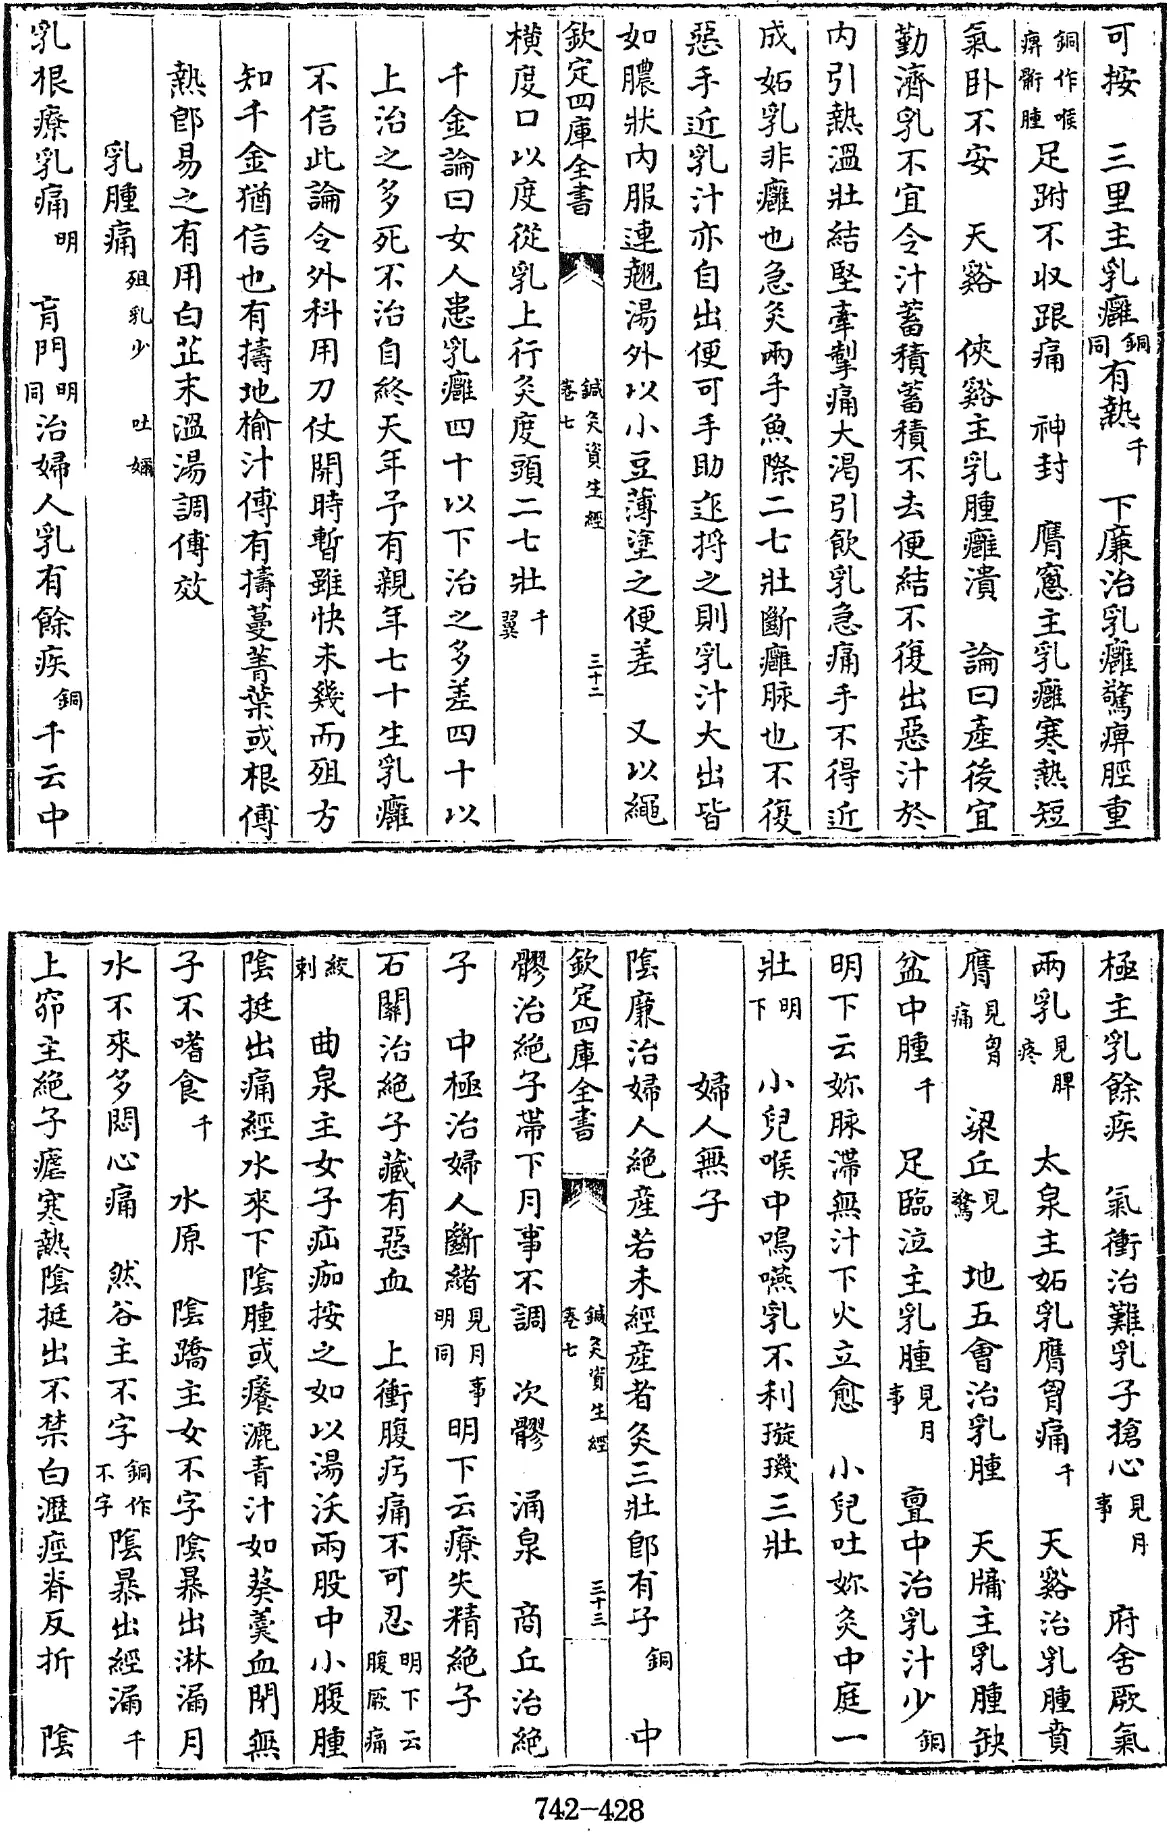 可按　三里主乳癰銅同有熱千　下廉治乳癰驚痹脛重
銅作喉痹䯒腫足跗不收跟痛　神封　膺窻主乳癰寒熱短
氣卧不安　天谿　俠谿主乳腫癰潰　論曰產後宜
勤濟乳不宜令汁蓄積蓄積不去便結不復出惡汁於
内引熱溫壯結堅牽掣痛大渴引飲乳急痛手不得近
成妬乳非癰也急灸兩手魚際二七壯斷癰脉也不復
惡手近乳汁亦自出便可手助迮捋之則乳汁大出皆
如膿狀内服連翹湯外以小豆薄塗之便差　又以繩
欽定四庫全書　鍼灸資生經卷七　三十二
橫度口以度從乳上行灸度頭二七壯千翼
千金論曰女人患乳癰四十以下治之多差四十以
上治之多死不治自終天年予有親年七十生乳癰
不信此論令外科用刀仗開時暫雖快未幾而殂方
知千金猶信也有擣地榆汁傅有擣蔓菁葉或根傅
熱郎易之有用白芷末溫湯調傅效
乳腫痛殂乳少　吐嬭
乳根療乳痛明　肓門明同治婦人乳有餘疾銅千云中
極主乳餘疾　氣衝治難乳子搶心見月事　府舍厥氣
兩乳見脾疼　太泉主妬乳膺胷痛千　天谿治乳腫賁
膺見胷痛　梁丘見驚　地五會治乳腫　天牖主乳腫缺
盆中腫千　足臨泣主乳腫見月事　亶中治乳汁少銅
明下云妳脉滞無汁下火立愈　小兒吐妳灸中庭一
壯明下　小兒喉中鳴嚥乳不利璇璣三壯
婦人無子
陰廉治婦人絶產若未經產者灸三壯郎有子銅　中
髎治絶子帶下月事不調　次髎　涌泉　商丘治絶
子　中極治婦人斷緒見月事明同明下云療失精絶子
石關治絶子藏有惡血　上衝腹㽲痛不可忍明下云腹厥痛
絞刺　曲泉主女子疝瘕按之如以湯沃兩股中小腹腫
陰挺出痛經水來下陰腫或癢漉青汁如葵羹血閉無
子不嗜食千　水原　陰蹻主女不字陰暴出淋漏月
水不來多悶心痛　然谷主不字銅作不字陰暴出經漏千
上窌主絶子瘧寒熱陰挺出不禁白瀝痙脊反折　陰
742-428